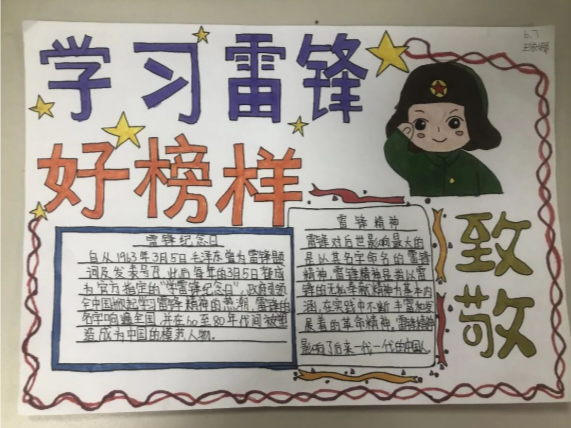 学习雷锋
好榜样
致敬
6.7
雷锋纪念日
自从1963年3月5日毛泽东曾为雷锋题
词及发表号召,此后每年的3月5日
为官方指定的“学雷锋纪念日”,政府
全中国掀起学习雷锋精神的热潮,雷锋的
名字响遍全国,并在60至80年代间被塑
造成为中国的模范人物。
雷锋精神
雷锋对后世影响最大的
是以其名字命名的雷锋
精神,雷锋精神是以雷
锋的无私奉献精神为基本内
涵,在实践中不断丰富和发
展着的革命精神,雷锋精神
影响了后来一代一代的中国人